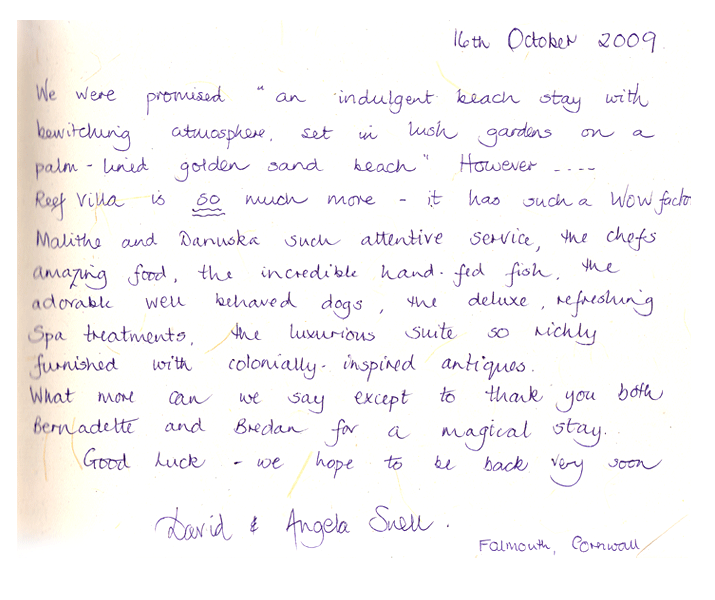 16th October 2009
We were promised "an indulgent beach stay with
bewitching atmosphere, set in lush gardens on a
palm-lined golden sand beach" However ----
Reef Villa is so much more - it has such a WOW facto
Malithe and Danuska such attentive service, the chefs
amazing food, the incredible hand-fed fish, the
adorable well behaved dogs, the deluxe, refreshing
Spa treatments, the luxurious suite so richly
furnished with colonially-inspired antiques.
What more can we say except to thank you both
Bernadette and Bredan for a magical stay.
Good Luck - we hope to be back very soon
David & Angela Snell.
Falmouth, Cornwall